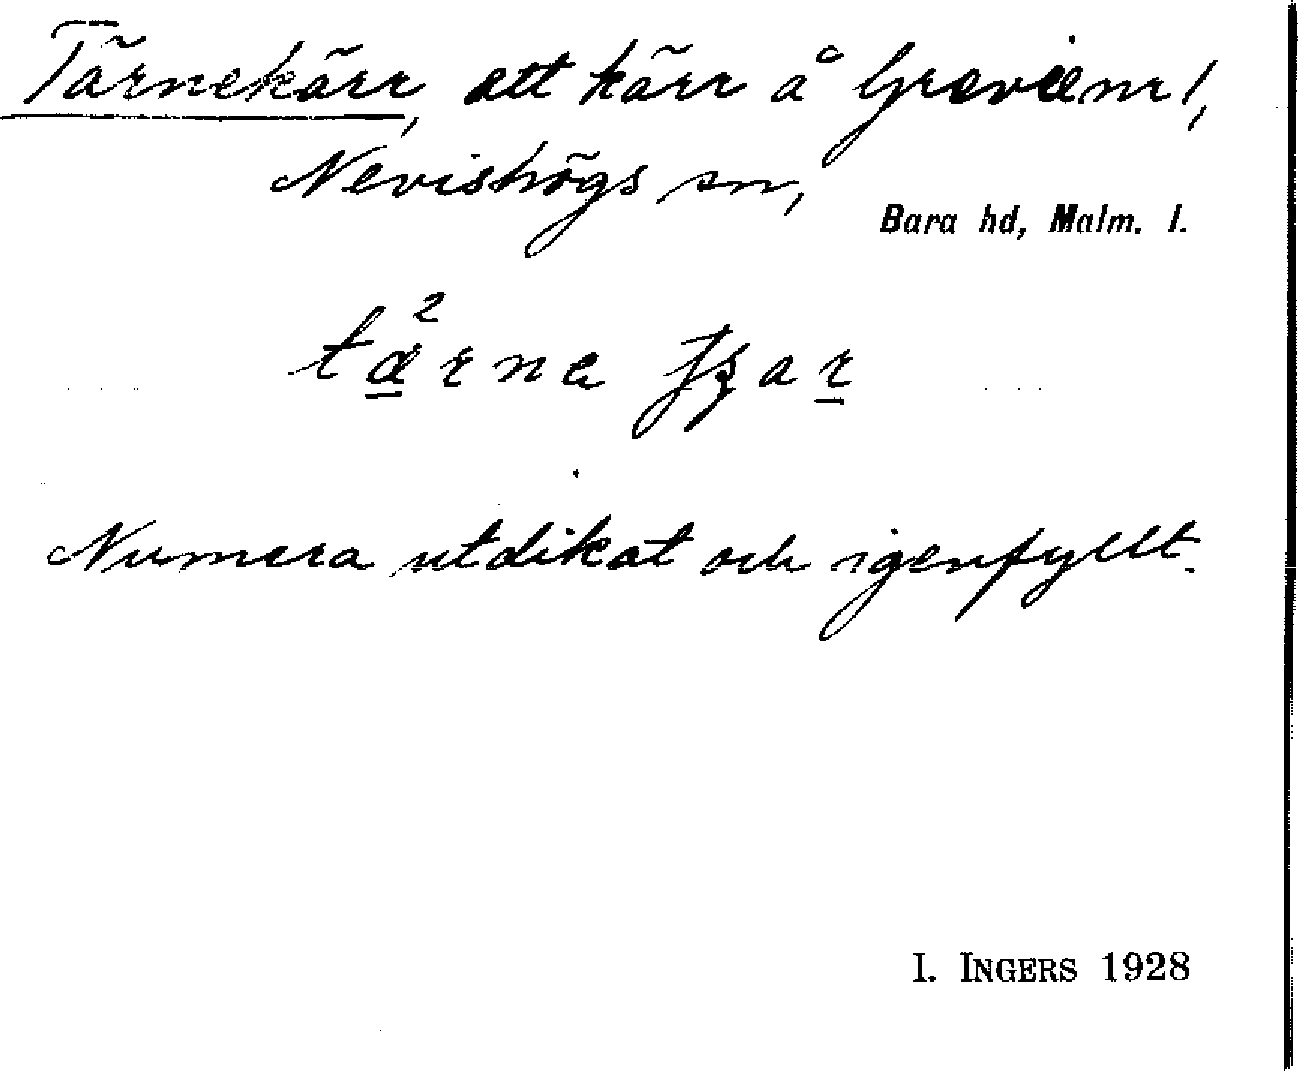 Tärnekärr, ett kärr å Grevie nr 1,
Nevishögs sn,
Bara hd, Malm. l.
Numera utdikat och igenfyllt.
I. INGERS 1928